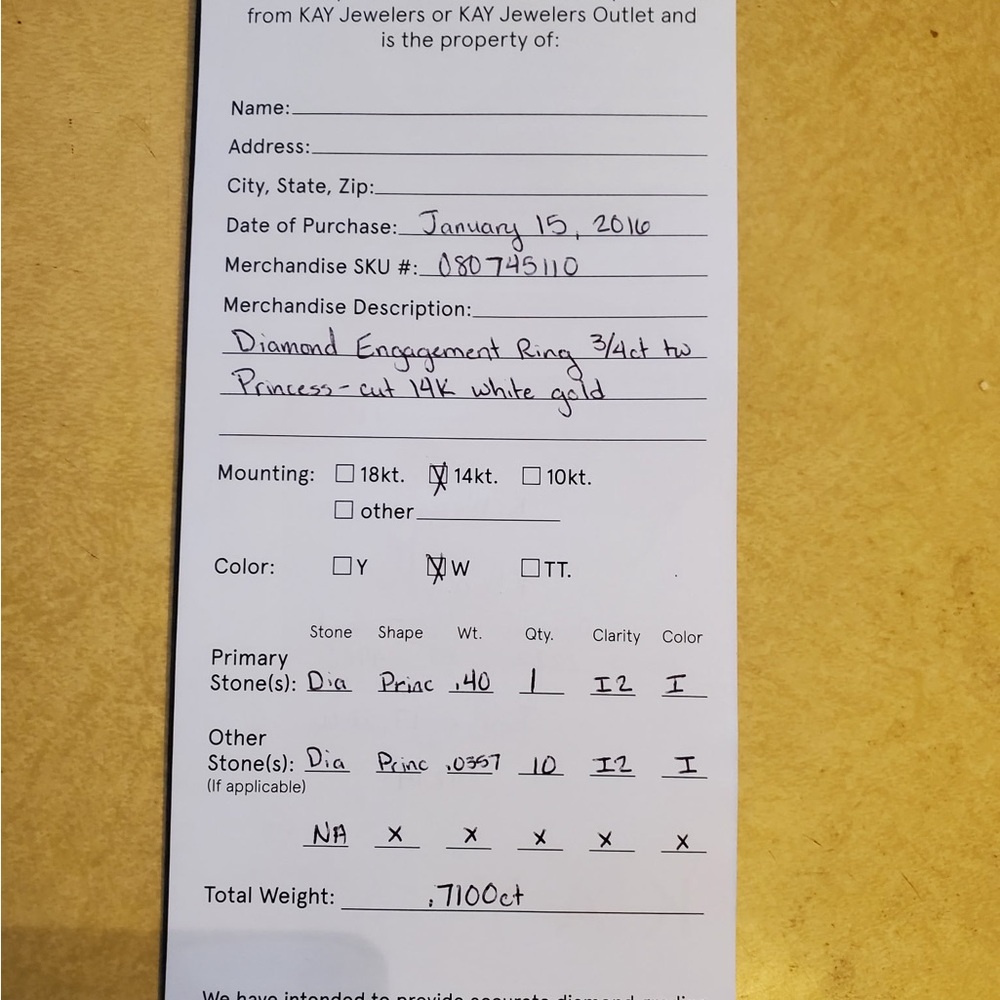 from KAY Jewelers or KAY Jewelers Outlet and
is the property of:
Name:
Address:
City, State, Zip:
Date of Purchase: January 15, 2016
Merchandise SKU #: 080745110
Merchandise Description:
Diamond Engagement Ring 3/4ct tw
Princess-cut 14K white gold
Mounting: 18kt. 14kt. 10kt.
other
Color: Y W TT.
Stone Shape Wt. Qty. Clarity Color
Primary
Stone(s): Dia Princ .40 1 I2 I
Other
Stone(s): Dia Princ .0357 10 I2 I
(If applicable)
NA X X X X X
Total Weight: .7100ct
We have intended to provide accurate diamond